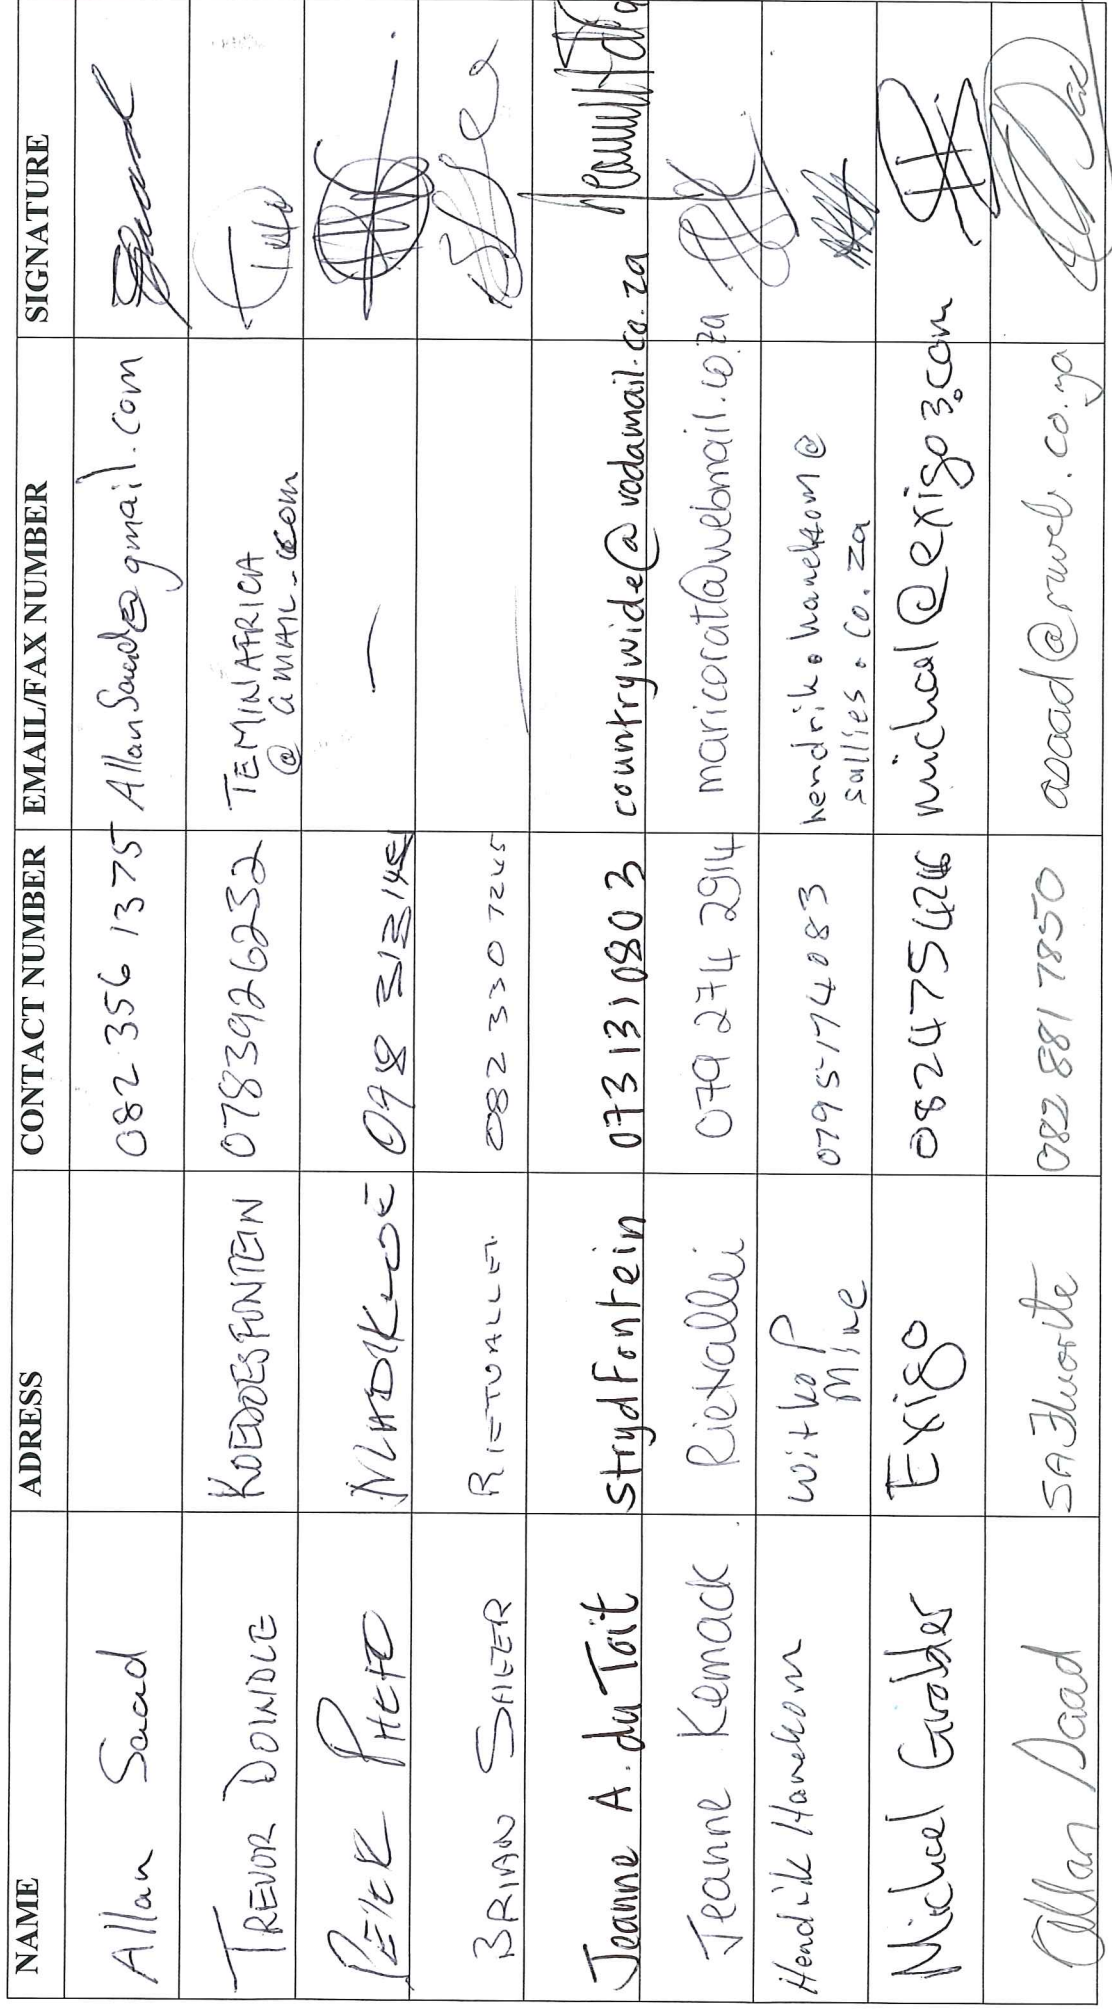 NAME ADRESS CONTACT NUMBER EMAIL/FAX NUMBER SIGNATURE
Allan Saad 082 356 1375 AllanSaad@gmail.com
TREVOR DOWIDLE KOEDOESFONTEIN 0783926232 TEMINAFRICA
@ GMAIL.COM
PETER PHETO —
BRIAN SHEER RIETVALLEI 082 330 7245
Jeanne A. du Toit Strydfontein 0731310803 countrywide@vodamail.co.za
Jeanne Kemack Rietvallei 079 274 2914 maricorat@webmail.co.za
Hendrik Hanekom Witkop 0795174083 hendrik.hanekom@
Mine sallies.co.za
Michael Grobler Exigo 0824754216 michael@exigo3.com
Allan Saad SA Fluorite 082 881 7850 asaad@mweb.co.za